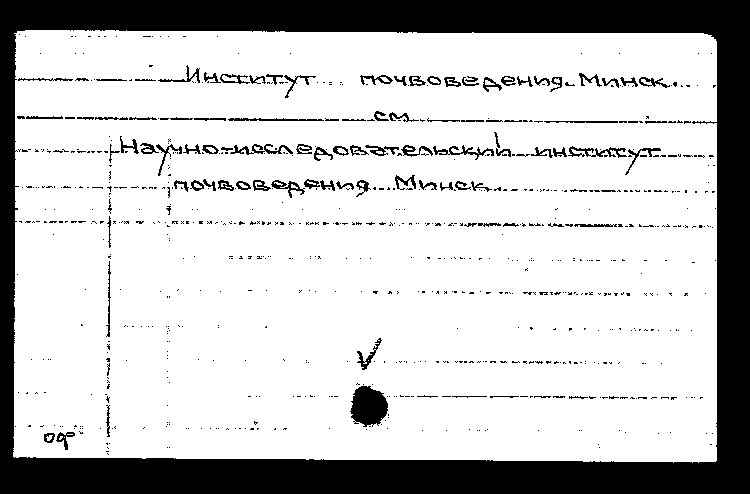 Институт почвоведения. Минск.
см
Научно-исследовательский институт
почвоведения. Минск.